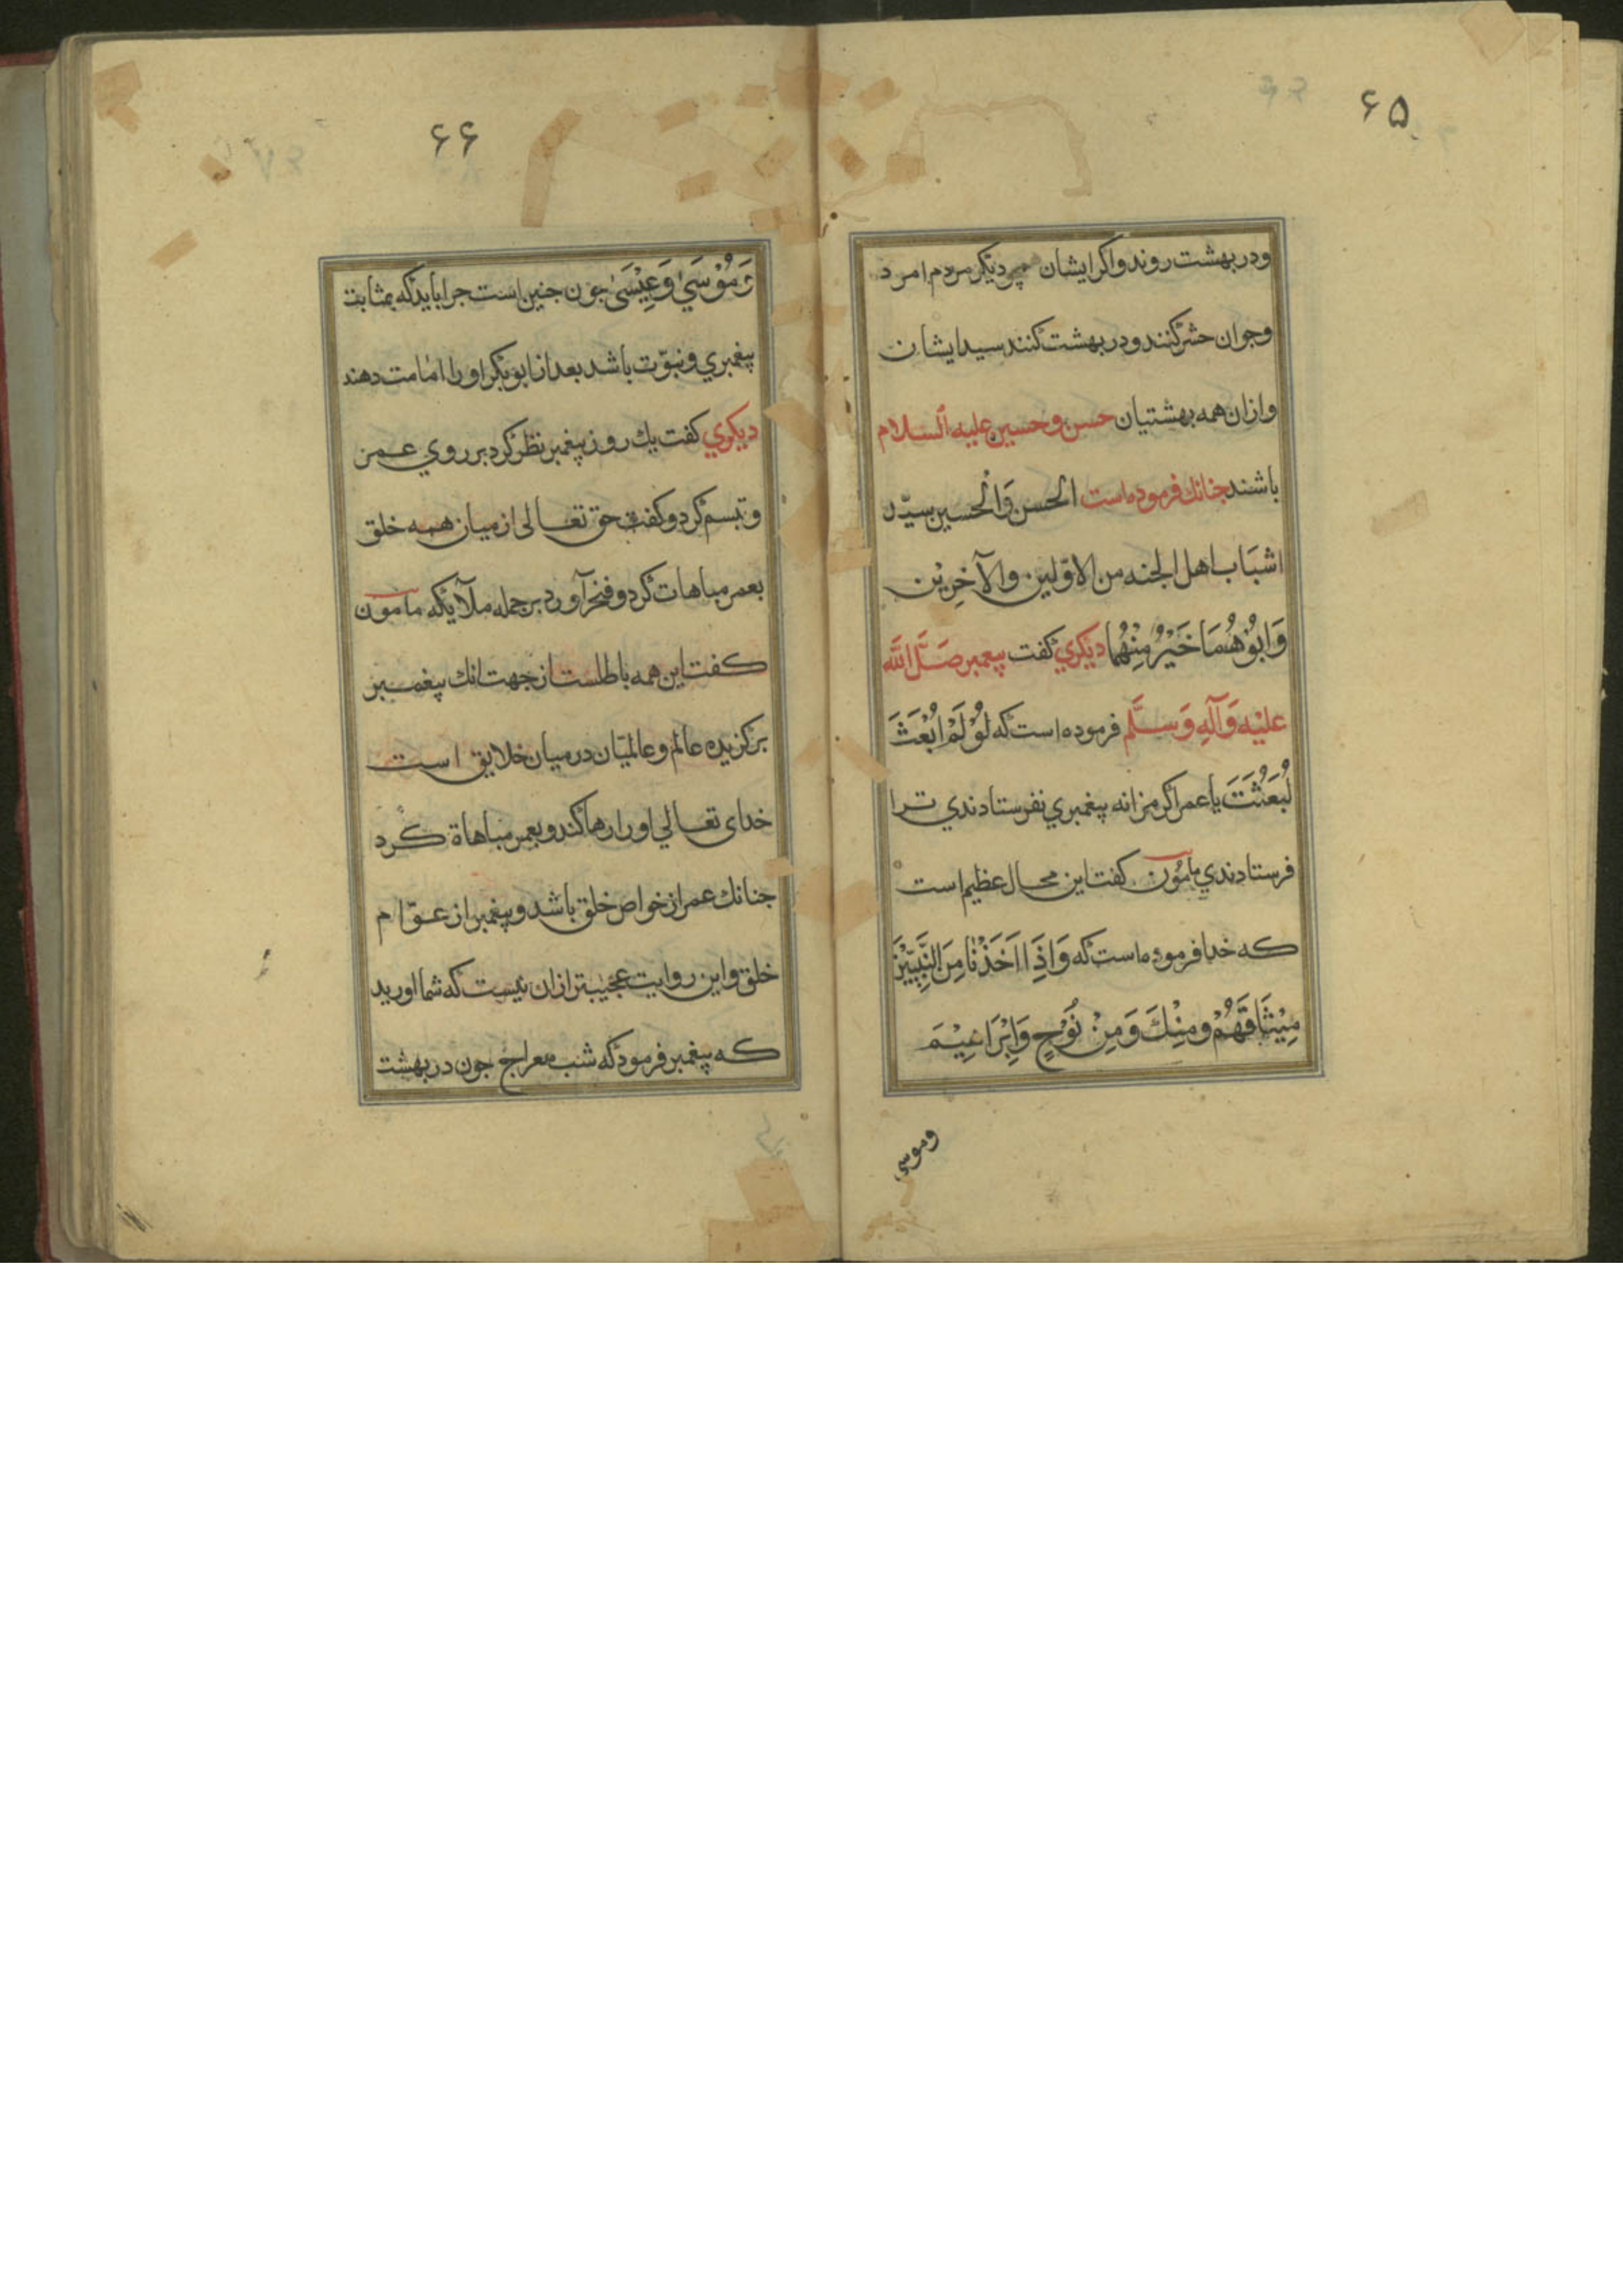 ۶۵
ودر بهشت روند واكر ايشان چو ديكر مردم امرد
وجوان حشر كنند ودر بهشت كنند سيد ايشان
وازان همه بهشتيان حسن وحسين عليه السلام
باشند جنانك فرموده است الحسن وَالْحسين سيّد
اشبَاب اهل الجنه من الاوّلين والآخِرِيْن
وَابُوْهُمَا خَيْرٌ مِنْهُمَا ديكري كفت پيغمبر صَلَّ اللَّه
عليْه وَآلِهِ وَسلَّم فرموده است كه لَوْ لَمْ اُبْعَثَ
لَبُعَثْتَ يا عمر اكر مرا نه پيغمبري نفرستادندي ترا
فرستادندي مامُون كفت اين محال عظيم است
كه خدا فرموده است كه وَاِذَا اَخَذْنَا مِنَ النَّبِيّيْنَ
مِيْثَاقَهُمْ ومِنْكَ وَمِنْ نُوْحٍ وَاِبْرَاهِيْمَ
وموسي
۶۶
وَمُوْسَيٰ وَعِيْسَىٰ جون جنين است جرا بايد كه بمثابت
پيغمبري ونبوّت باشد بعد از ابوبكر او را امامت دهند
ديكري كفت يك روز پيغمبر نظر كرد بر روي عمر
وتبسم كرد وكفت حق تعالى از ميان همه خلق
بعمر مباهات كرد وفخر آورد بر جمله ملآيكه مامون
كفت اين همه باطلست از جهت انك پيغمبر
بركزيده عالم وعالميان در ميان خلايق است
خداى تعالي او را رها كند وبعمر مباهاة كرد
جنانك عمر از خواص خلق باشد وپيغمبر از عوّام
خلق واين روايت عجيبتر ازان نيست كه شما اوريد
كه پيغمبر فرمود كه شب معراج جون در بهشت